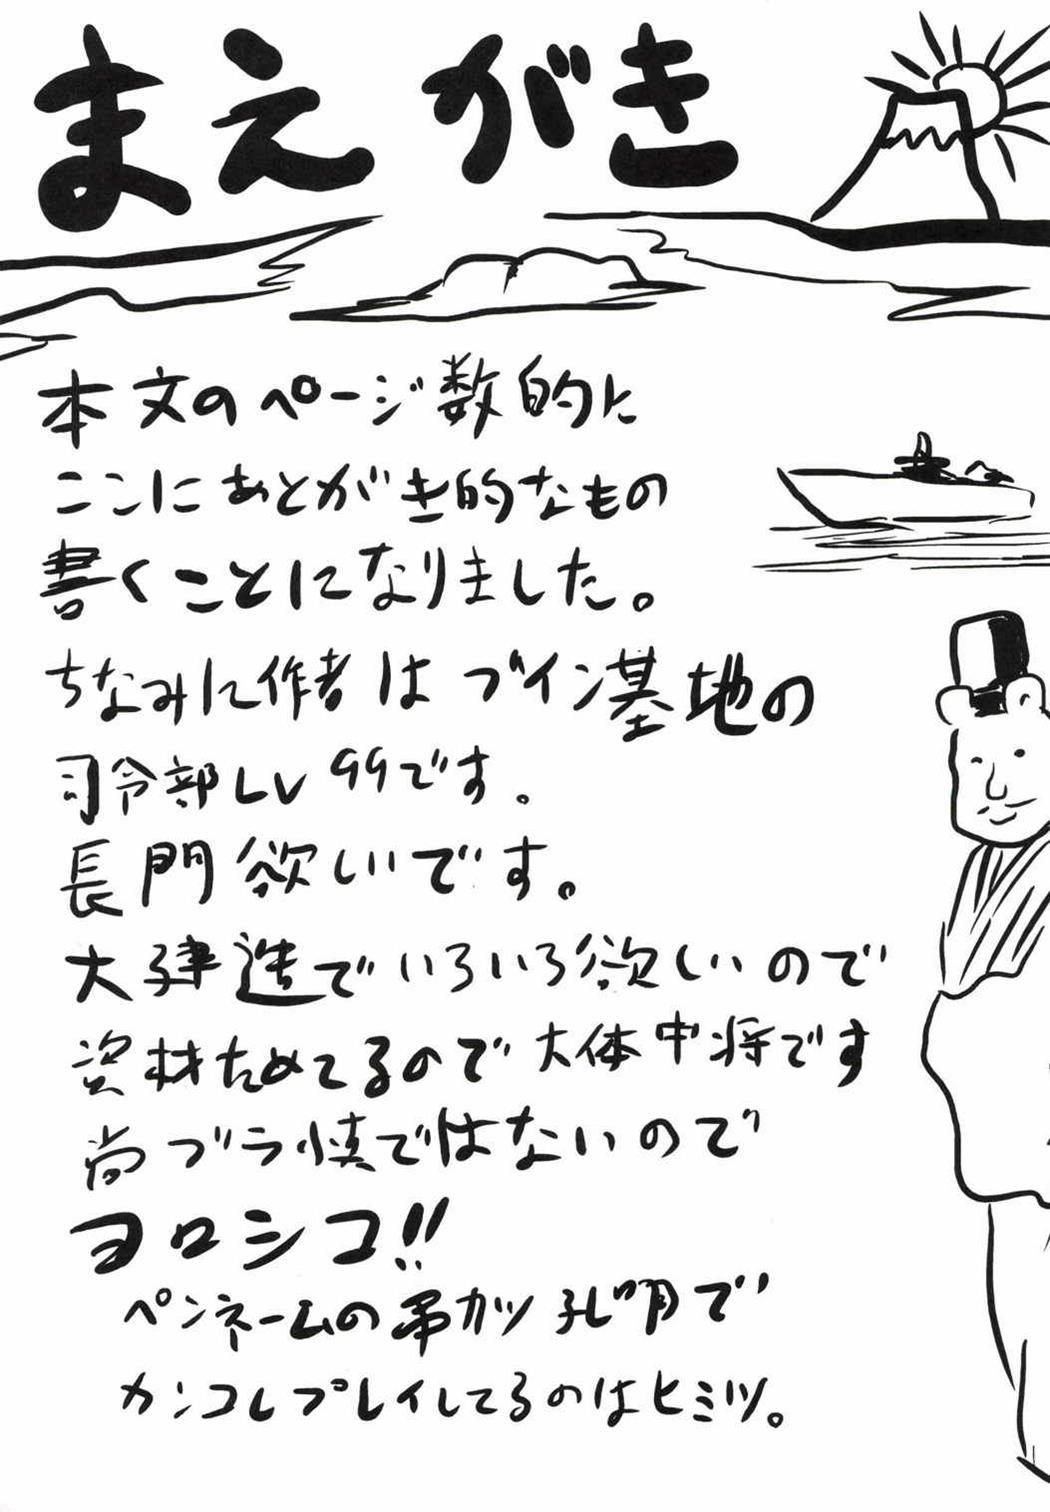 まえがき
本文のページ数的に
ここにあとがき的なもの
書くことになりました。
ちなみに作者はブイン基地の
司令部Lv99です。
長門欲しいです。
大建造でいろいろ欲しいので
資材ためてるので大体中将です
尚ブラ慎ではないので
ヨロシコ!!
ペンネームの串カツ孔明で
カンコレプレイしてるのはヒミツ。